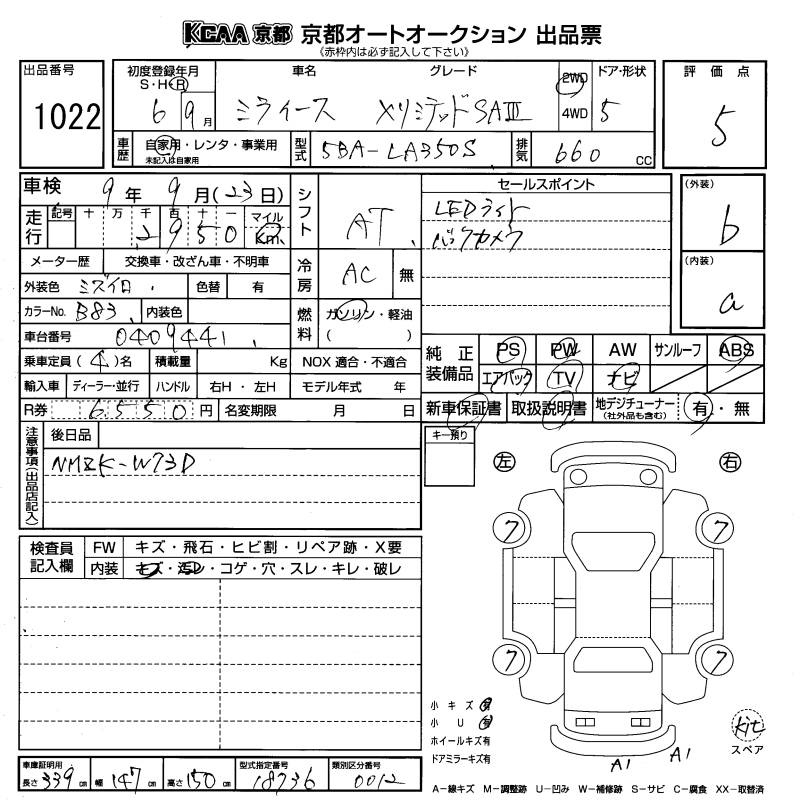 KCAA 京都 京都オートオークション 出品票
《赤枠内は必ず記入して下さい》
出品番号
1022
初度登録年月
S・H・R
6 9月
車名
ミライース
グレード
Xリミテッド SAⅢ
2WD
4WD
ドア・形状
5
評価点
5
車歴
自家用・レンタ・事業用
未記入は自家用
型式
5BA-LA350S
排気
660 CC
車検
9年 9月(23日)
走行
記号 十 万 千 百 十 一 マイル
2950 Km
メーター歴 交換車・改ざん車・不明車
外装色 ミズイロ 色替 有
カラーNo. B83 内装色
車台番号 0409441
乗車定員 (4)名 積載量 Kg
NOX 適合・不適合
輸入車 ディーラー・並行 ハンドル 右H・左H
モデル年式 年
R券 6550円 名変期限 月 日
シフト AT
冷房 AC 無
燃料 ガソリン・軽油
( )
セールスポイント
LEDライト
バックカメラ
(外装)
b
(内装)
a
純正装備品
PS PW AW サンルーフ ABS
エアバック TV ナビ
新車保証書 取扱説明書 地デジチューナー 有・無
(社外品も含む)
注意事項(出品店記入)
後日品
NMZK-W73D
キー預り
左
右
7 7
7 7
検査員記入欄
FW キズ・飛石・ヒビ割・リペア跡・X要
内装 キズ・汚レ・コゲ・穴・スレ・キレ・破レ
小キズ有
小U有
ホイールキズ有
ドアミラーキズ有
A1 A1
kit
スペア
車庫証明用
長さ 339cm 幅 147cm 高さ 150cm
型式指定番号 18736
類別区分番号 0012
A－線キズ M－調整跡 U－凹み W－補修跡 S－サビ C－腐食 XX－取替済